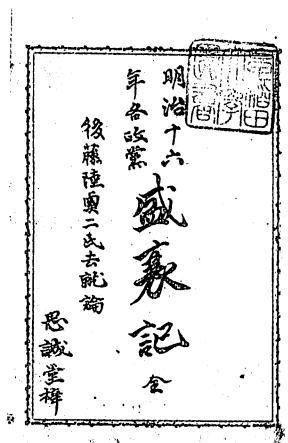 明治十六
年各政黨
盛衰記 全
後藤陸奧二氏去就論
思誠堂梓